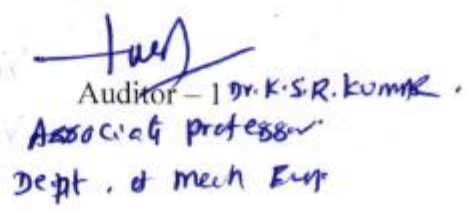 Auditor – 1 Dr. K.S.R. Kumar.
Associate professor
Dept. of Mech Engr